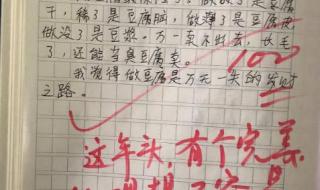 干，稀了是豆腐脑，做薄了是豆腐皮
做没了是豆浆。万一卖不出去，长毛
了，还能当臭豆腐卖。
我觉得做豆腐是万无一失的发财
之路。
100
这年头，有个完美